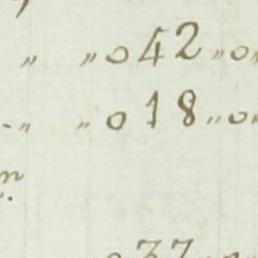 " " 0 42 " 0 "
- " " 0 18 " 0
m.
0 37 " 0 "